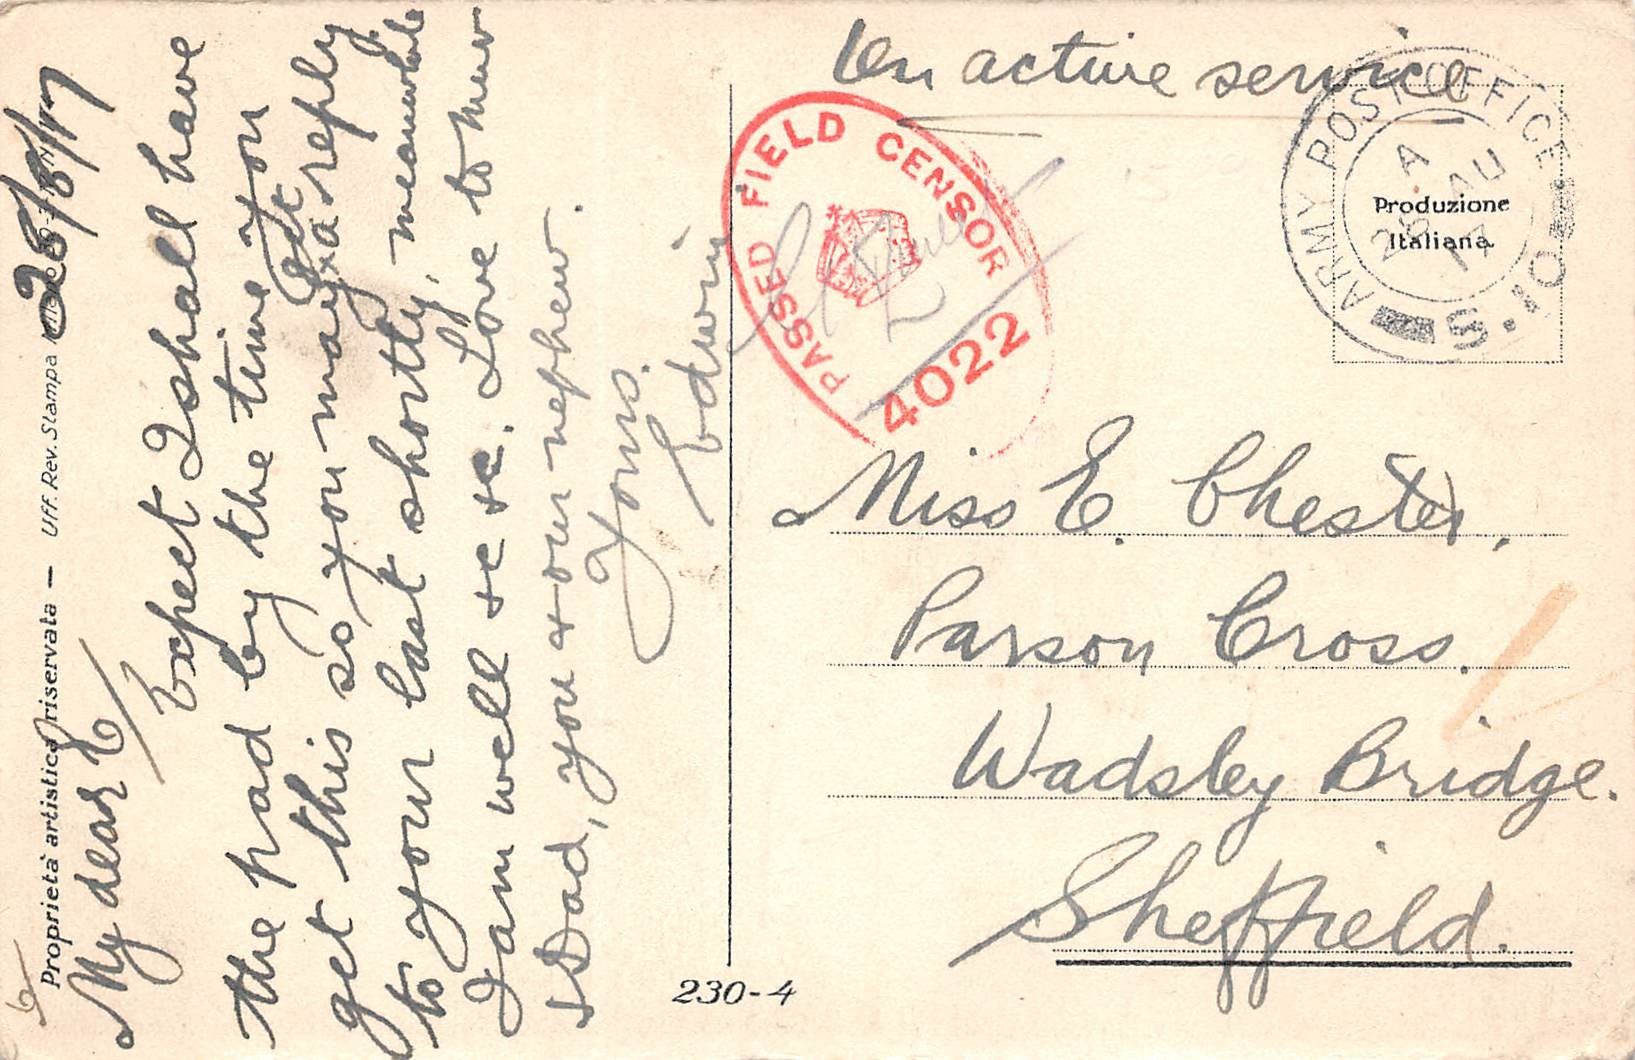 26/8/17
My dear E/
Expect I shall have
the pad by the time you
get this so you may get
x a reply
to your last shortly, meanwhile
I am well &c &c. Love to Mur
& Dad, you & our nephew.
Yours.
Edwin
Proprietà artistica riservata — Uff. Rev. Stampa
230-4
On active service
PASSED FIELD CENSOR
4022
ARMY POST OFFICE
A
26 AU
17
S.10
Produzione
Italiana
Miss E. Chester,
Parson Cross.
Wadsley Bridge.
Sheffield.